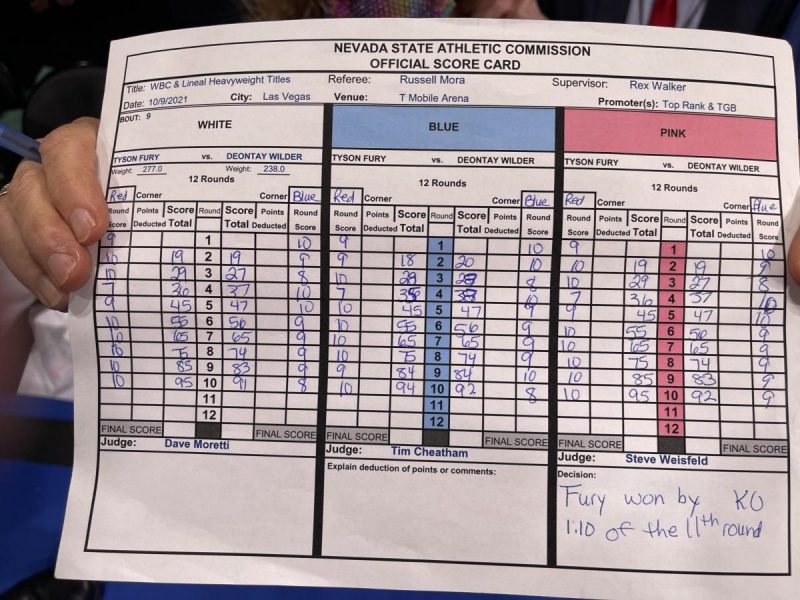 NEVADA STATE ATHLETIC COMMISSION
OFFICIAL SCORE CARD
Title: WBC & Lineal Heavyweight Titles Referee: Russell Mora Supervisor: Rex Walker
Date: 10/9/2021 City: Las Vegas Venue: T Mobile Arena Promoter(s): Top Rank & TGB
BOUT: 9
WHITE BLUE PINK
TYSON FURY vs. DEONTAY WILDER TYSON FURY vs. DEONTAY WILDER TYSON FURY vs. DEONTAY WILDER
Weight: 277.0 Weight: 238.0
12 Rounds 12 Rounds 12 Rounds
Red Corner Corner Blue Red Corner Corner Blue Red Corner Corner Blue
Round Points Score Round Score Points Round Round Points Score Round Score Points Round Round Points Score Round Score Points Round
Score Deducted Total Total Deducted Score Score Deducted Total Total Deducted Score Score Deducted Total Total Deducted Score
9 1 10 9 1 10 9 1 10
10 19 2 19 9 9 18 2 20 10 10 19 2 19 9
10 29 3 27 8 10 3 8 10 29 3 27 8
7 36 4 37 10 7 4 10 7 36 4 37 10
9 45 5 47 10 10 45 5 47 9 9 45 5 47 10
10 55 6 56 9 10 55 6 56 9 10 55 6 56 9
10 65 7 65 9 10 65 7 65 9 10 65 7 65 9
10 75 8 74 9 10 75 8 74 9 10 75 8 74 9
10 85 9 83 9 9 84 9 84 10 10 85 9 83 9
10 95 10 91 8 10 94 10 92 8 10 95 10 92 9
11 11 11
12 12 12
FINAL SCORE FINAL SCORE FINAL SCORE FINAL SCORE FINAL SCORE FINAL SCORE
Judge: Dave Moretti Judge: Tim Cheatham Judge: Steve Weisfeld
Explain deduction of points or comments: Decision:
Fury won by KO
1:10 of the 11th round